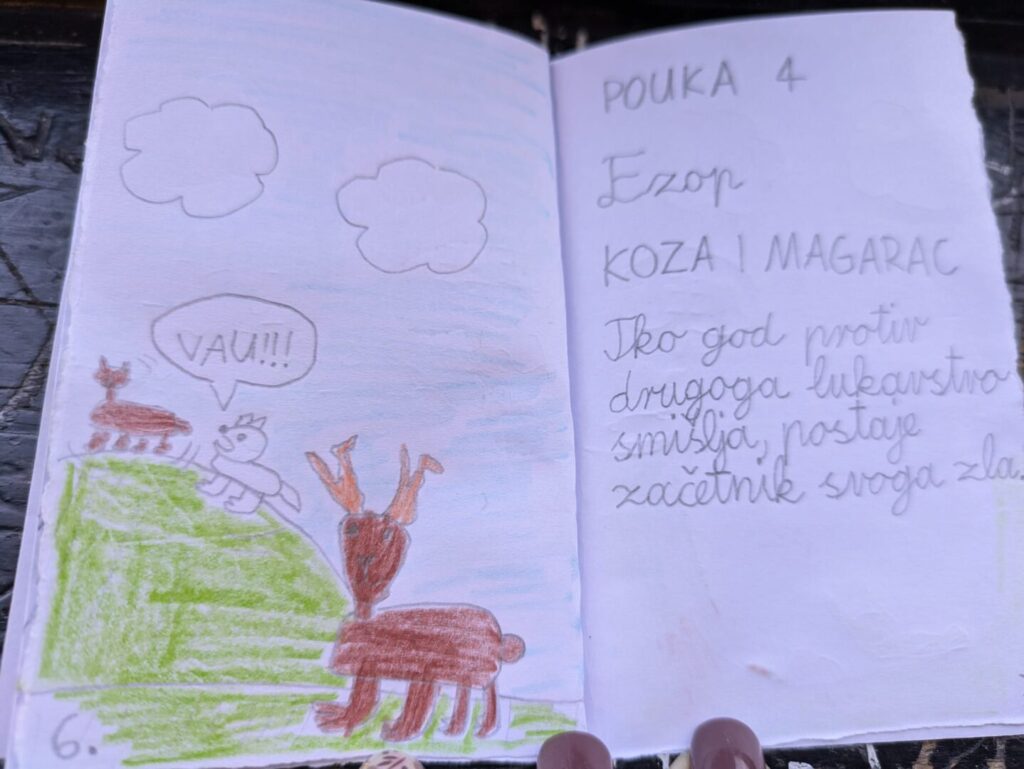 VAU!!!
6.
POUKA 4
Ezop
KOZA I MAGARAC
Tko god protiv
drugoga lukavstvo
smišlja, postaje
začetnik svoga zla.